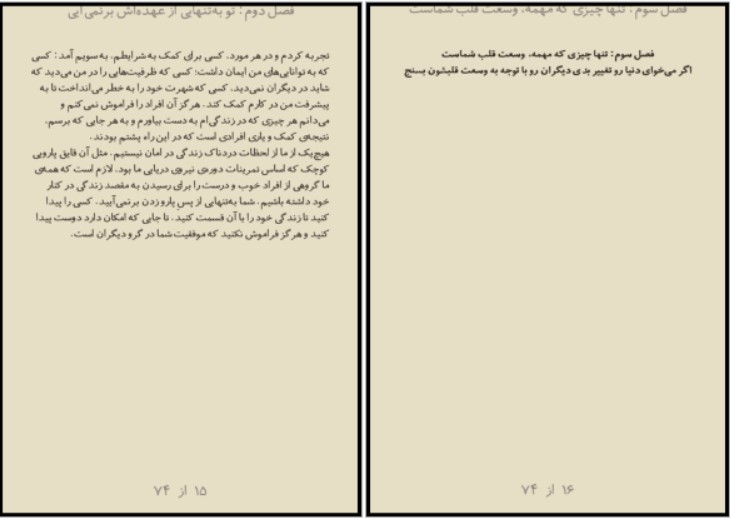 فصل دوم: تو به‌تنهایی از عهده‌اش برنمی‌آیی
تجربه کردم و در هر مورد، کسی برای کمک به‌شرایطم، به‌سویم آمد: کسی
که به توانایی‌های من ایمان داشت؛ کسی که ظرفیت‌هایی را در من می‌دید که
شاید در دیگران نمی‌دید. کسی که شهرت خود را به خطر می‌انداخت تا به
پیشرفت من در کارم کمک کند. هرگز آن افراد را فراموش نمی کنم و
می‌دانم هر چیزی که در زندگی‌ام به دست بیاورم و به هر جایی که برسم،
نتیجه‌ی کمک و یاری افرادی است که در این راه پشتم بودند.
هیچ‌یک از ما از لحظات دردناک زندگی در امان نیستیم. مثل آن قایق پارویی
کوچک که اساس تمرینات دوره‌ی نیروی دریایی ما بود. لازم است که همه‌ی
ما گروهی از افراد خوب و درست را برای رسیدن به مقصد زندگی در کنار
خود داشته باشیم. شما به‌تنهایی از پسِ پارو زدن برنمی‌آیید. کسی را پیدا
کنید تا زندگی خود را با آن قسمت کنید. تا جایی که امکان دارد دوست پیدا
کنید و هرگز فراموش نکنید که موفقیت شما در گرو دیگران است.
۱۵ از ۷۴
فصل سوم: تنها چیزی که مهمه، وسعت قلب شماست
فصل سوم: تنها چیزی که مهمه، وسعت قلب شماست
اگر می‌خوای دنیا رو تغییر بدی دیگران رو با توجه به وسعت قلبشون بسنج
۱۶ از ۷۴